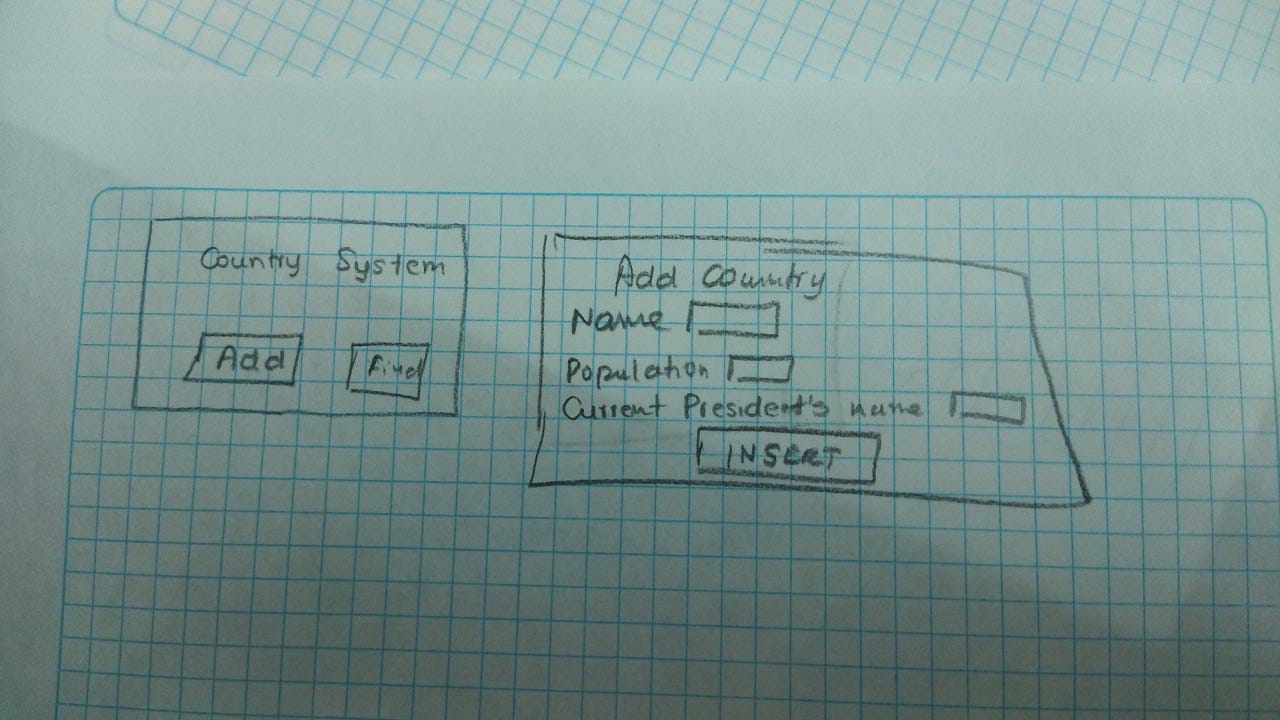 Country System
Add
Find
Add Country
Name
Population
Current President's name
INSERT